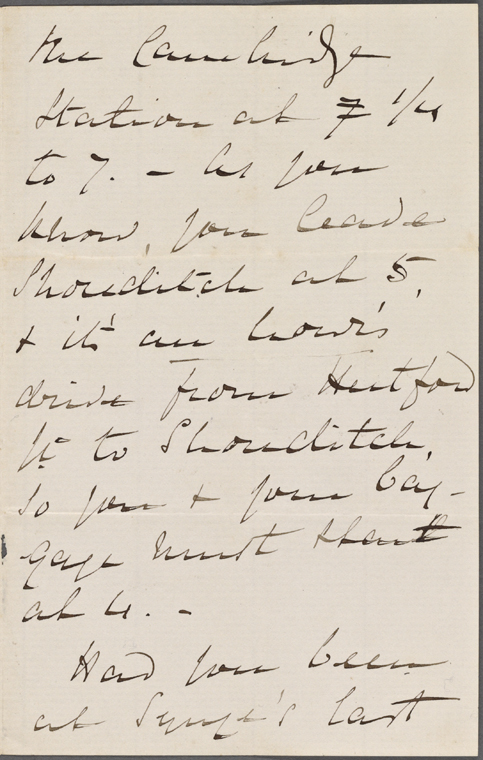 the Cambridge
Station at 7 1/4
to 7. - As you
know, you leave
Shoreditch at 5,
& it's an hour's
drive from Hertford
St to Shoreditch,
so you & your bag-
gage must start
at 4. -
Had you been
at Synge's last